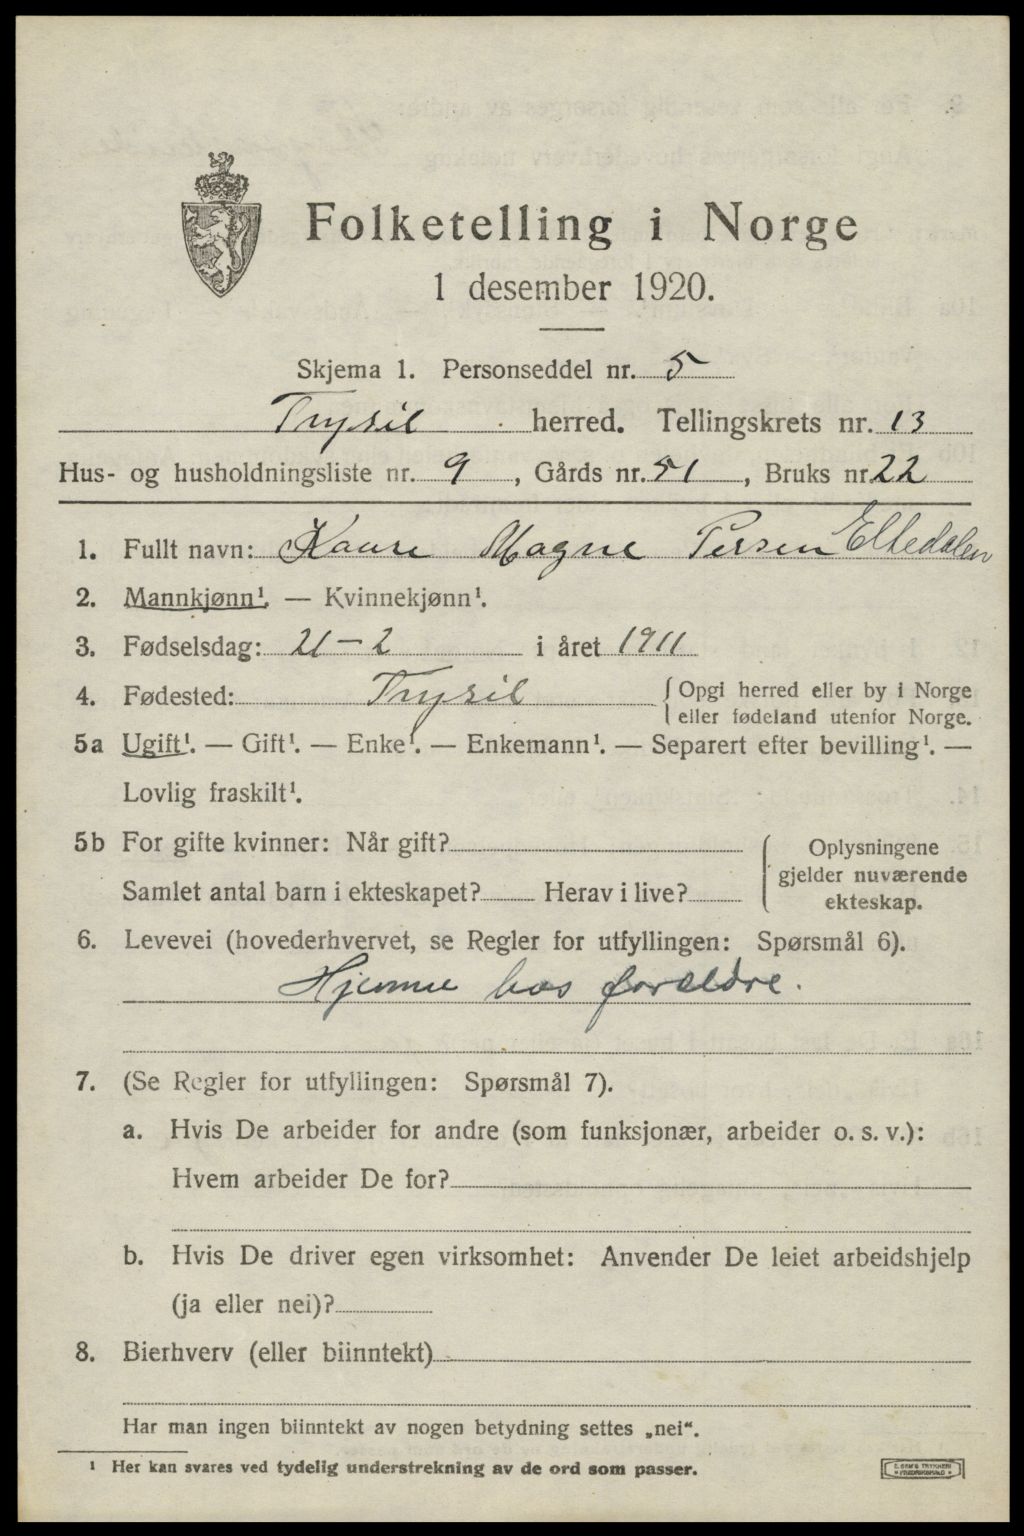 Folketelling i Norge
1 desember 1920.
Skjema 1. Personseddel nr. 5
Trysil herred. Tellingskrets nr. 13
Hus- og husholdningsliste nr. 9, Gårds nr. 51, Bruks nr. 22
1. Fullt navn: Kaare Magne Persen Eltedalen
2. Mannkjønn¹. — Kvinnekjønn¹.
3. Fødselsdag: 21-2 i året 1911
4. Fødested: Trysil { Opgi herred eller by i Norge
eller fødeland utenfor Norge.
5a Ugift¹. — Gift¹. — Enke¹. — Enkemann¹. — Separert efter bevilling¹. —
Lovlig fraskilt¹.
5b For gifte kvinner: Når gift?
Samlet antal barn i ekteskapet? Herav i live?
Oplysningene
gjelder nuværende
ekteskap.
6. Levevei (hovederhvervet, se Regler for utfyllingen: Spørsmål 6).
Hjemme hos foreldre.
7. (Se Regler for utfyllingen: Spørsmål 7).
a. Hvis De arbeider for andre (som funksjonær, arbeider o. s. v.):
Hvem arbeider De for?
b. Hvis De driver egen virksomhet: Anvender De leiet arbeidshjelp
(ja eller nei)?
8. Bierhverv (eller biinntekt)
Har man ingen biinntekt av nogen betydning settes „nei“.
¹ Her kan svares ved tydelig understrekning av de ord som passer.